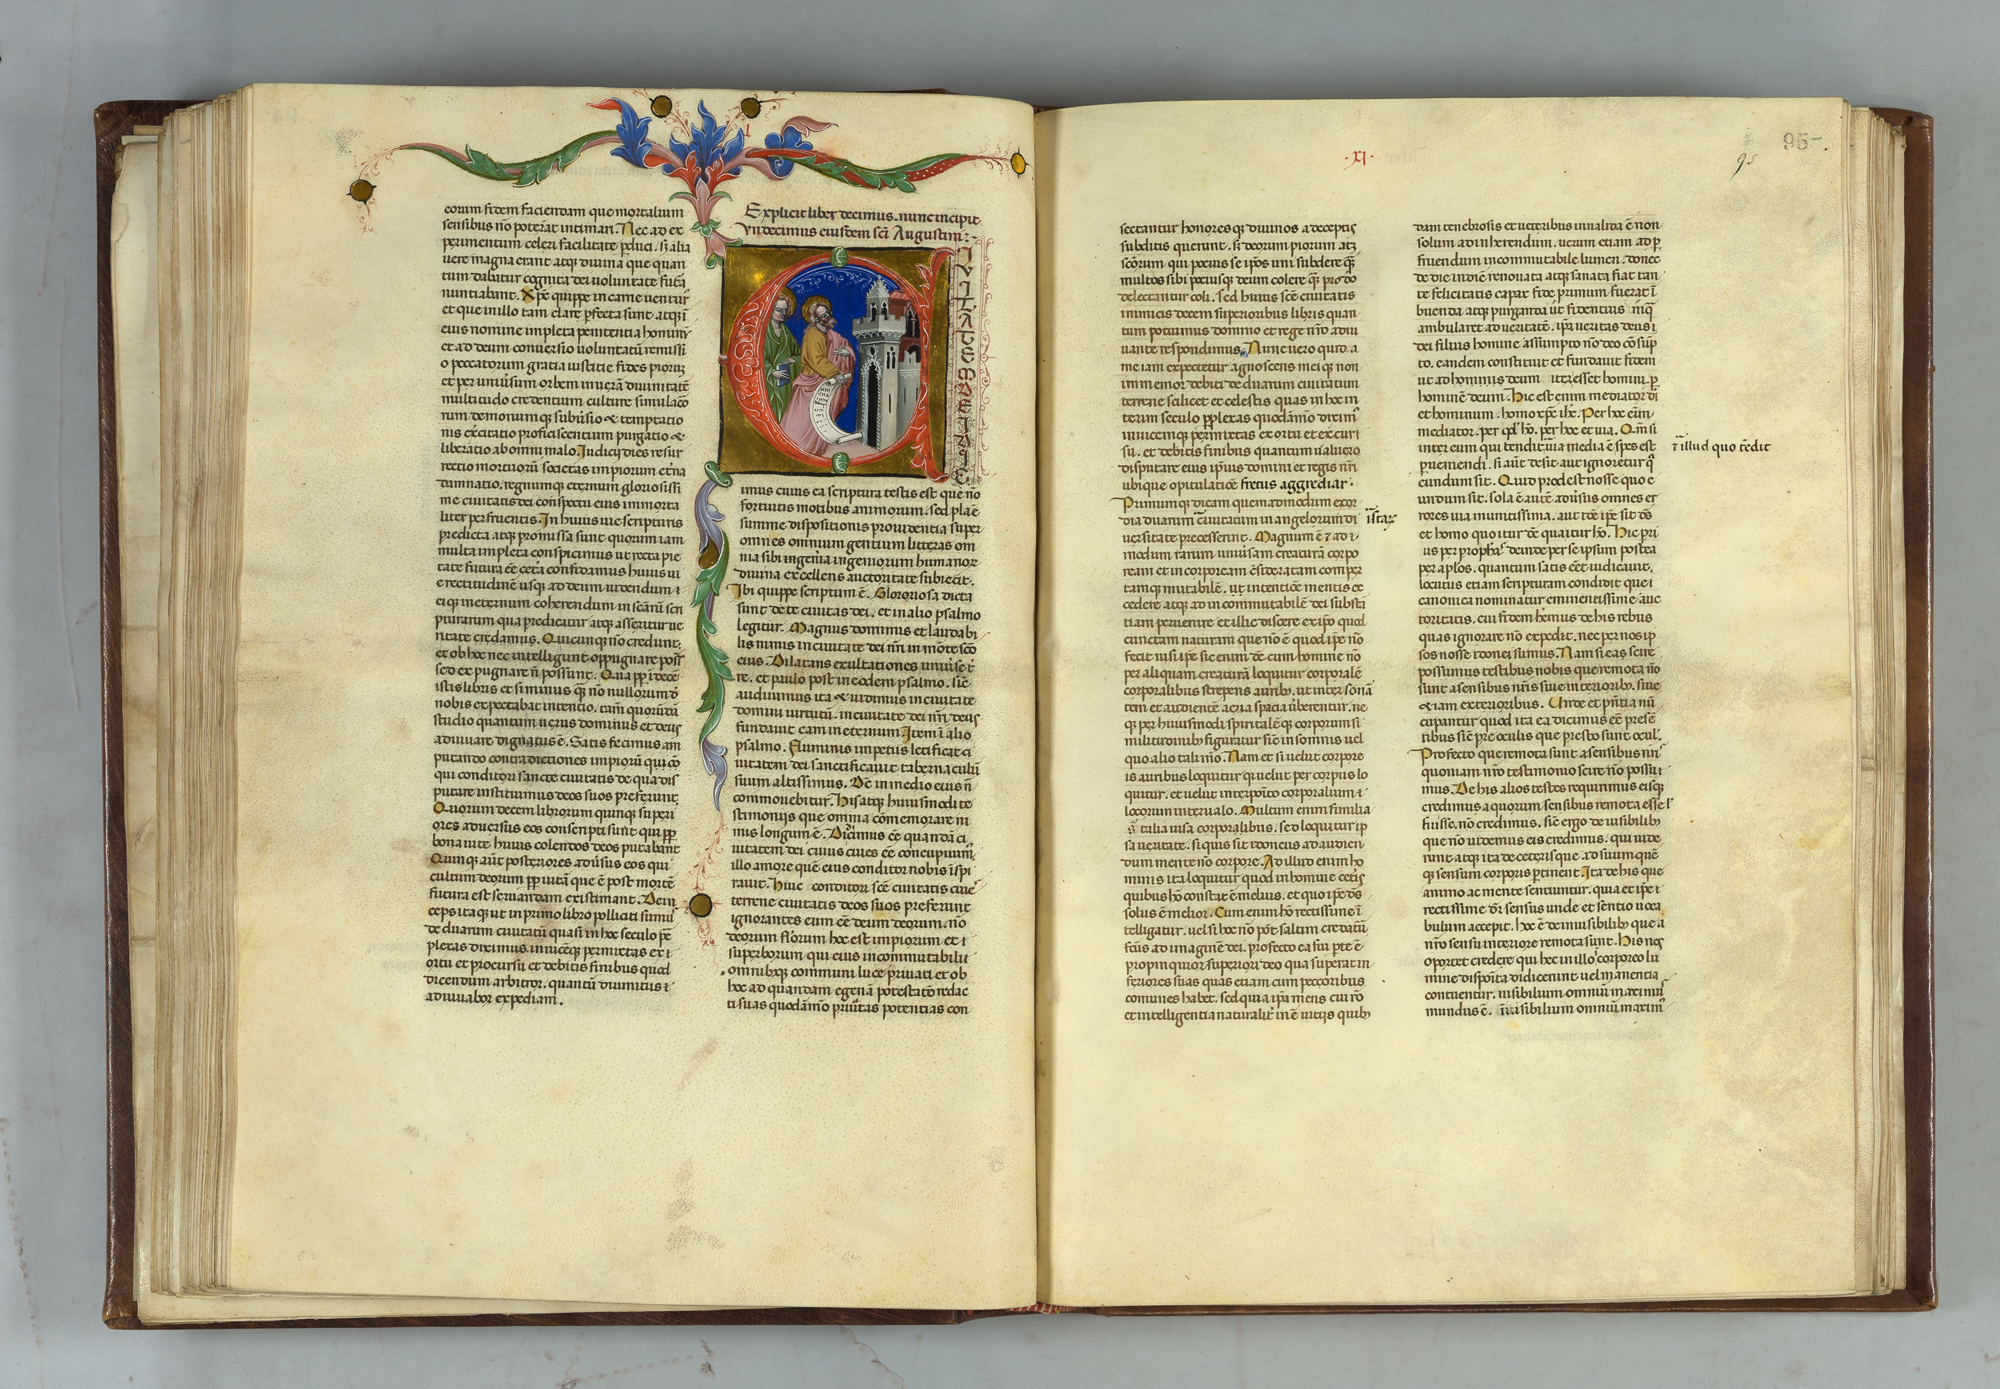 eorum fidem faciendam que mortalium
sensibus nō poterāt intimari. Nec ad ex
perimentum celeri facilitate p̄duci. sʒ alia
uere magna erant atqʒ diuina que quan
tum dabatur cognita dei uoluntate futā
nuntiabant. Xp̄c quippe in carne uentur᷒
et que in illo tam clare p̄fecta sunt atqʒ ī
eius nomine impleta penitentia hominū
et ad deum conuersio uoluntatū remissi
o peccatorum gratia iustitie fides piorūqʒ
et per uniūsum orbem in uerā diuinitatē
multitudo credentium culture simulacro
rum demonumqʒ subūsio & temptatio
nis excitatio proficiscentium purgatio &
liberatio ab omni malo. Iudicij dies resur
rectio mortuorū societas impiorum etna
damnatio. regnumqʒ eternum gloriosissi
me ciuitatis dei conspectu eius immorta
liter perfruentis. In huius uie scripturis
predicta atqʒ promissa sunt quorum iam
multa impleta conspicimus ut recta pie
tate futura eē cet̄a confidamus huius ui
e rectitudinē usqʒ ad deum uidendum i
eiqʒ in eternum coherendum in scārū scri
pturarum qua predicatur atqʒ asseritur ue
ritate credamus. Quicunqʒ nō credunt.
et ob hoc nec intelligunt oppugnare poss̄
sed expugnare n̄ possunt. Qua pp̄ in decē
istis libris et si minus qʒ nō nullorum d̄
nobis expectabat intentio. tam̄ quorūdā
studio quantum uerus dominus et deus
adiuuare dignatus ē. Satis fecimus am
putando contradictiones impiorū qui cō
qui conditori sancte ciuitatis de qua dis
putare instituimus deos suos preferunt.
Quorum decem librorum quinqʒ superi
ores aduersus eos conscripti sunt qui pp̄
bona uite huius colendos deos putabant
Quinqʒ aūt posteriores adūsus eos qui
cultum deorum pp̄ uitā que ē post mortē
futura est seruandam existimant. Dein
ceps itaqʒ ut in primo libro polliciti sumu᷒
de duarum ciuitatū quas in hoc seculo p̄e
plexas diximus. inuicēqʒ permixtas ex i
ortu et procursu et debitis finibus quod
dicendum arbitror. quantū diuinitus i
adiuuabor expediam.
Explicit liber decimus. nunc incipit
Vndecimus eiusdem scī Augustini:-
CIVITATEM DEI DIC
imus cuius ea scriptura testis est que nō
fortuitis motibus animorum. sed plaē
summe dispositionis prouidentia super
omnes omnium gentium litteras om
nia sibi ingēia ingeniorum humanoꝝ
diuina excellens auctoritate subiecit.
Ibi quippe scriptum ē. Gloriosa dicta
sunt de te ciuitas dei. et in alio psalmo
legitur. Magnus dominus et laudabi
lis nimis in ciuitate dei nr̄i in mōte scō
eius. Dilatans exultationes uniuse t̄
re. et paulo post in eodem psalmo. sic̄
audiuimus ita & uidimus in ciuitate
domini uirtutū. in ciuitate dei nr̄i deus
fundauit eam in eternum Item ī alio
psalmo. Fluminis impetus letificat ci
uitatem dei sanctificauit tabernaculū
suum altissimus. De in medio eius n̄
commouebitur. His atqʒ huiusmodi te
stimonijs que omnia cōmemorare ni
mis longum ē. Dicimus eē quandā ci
uitatem dei cuius ciues eē concupiuim᷒.
illo amore quē eius conditor nobis ispi
rauit. Huic conditori scē ciuitatis ciue᷒
terrene ciuitatis deos suos preferunt
ignorantes eum eē deum deorum. nō
deorum fl̄orum hoc est impiorum et i
superborum qui eius incommutabili
omnibqʒ communi luce priuati et ob
hoc ad quandam egenā potestatē redac
ti suas quodāmō priūtas potentias con
·XI·
95
95-.
sectantur honores qʒ diuinos a deceptis
subditis querunt. sʒ deorum piorum atqʒ
scōrum qui pocius se ip̄os uni subdere qʒ
multos sibi pociusqʒ deum colere qʒ pro do
delectantur coli. sed huius scē ciuitatis
inimicis decem superioribus libris quan
tum potuimus domino et rege nr̄o adiu
uante respondimus. Nunc uero quid a
me iam expectetur agnoscens mei qʒ non
immemor debiti de duarum ciuitatum
terrene scilicet et celestis quas in hoc in
terim seculo p̄plexas quodāmō dixim᷒
inuicemqʒ permixtas exortu et excur
su. et debitis finibus quantum ualuero
disputare eius ip̄ius domini et regis nr̄i
ubiqʒ opitulatiōe fretus aggrediar.
Primumqʒ dicam quemadmodum exor
dia duarum ciuitatum in angelorum di
uersitate precesserint. Magnum ē & ad i
modum rarum uniūsam creaturā corpo
ream et incorpoream cōsideratam comper
tamqʒ mutabilē. ut intentiōe mentis ex
cedere atqʒ ad incommutabilē dei substā
tiam peruenire et illic discere ex ip̄o quod
cunctam naturam que nō ē quod ip̄e nō
fecit nisi ip̄e sic enim dē cum homine nō
per aliquam creaturā loquitur corporalē
corporalibus strepens auribʒ. ut inter sonā
tem et audientē aeria spacia ūberentur. ne
qʒ per huiusmodi spiritalēqʒ corporum si
militudinibʒ figuratur sic̄ in somnis uel
quo alio tali mō. Nam et si uelut corpore
is auribus loquitur qʒ uelut per corpus lo
quitur. et uelut interpōito corporalium i
locorum interuallo. Multum enim similia
s̄ talia uisa corporalibus. sed loquitur ip̄
sa ueritate. si quis sit idoneus ad audien
dum mente nō corpore. Ad illud enim ho
minis ita loquitur quod in homine cet̄is
quibus hō constat ē melius. et quo ip̄e d̄s
solus ē melior. Cum enim hō rectissime ī
telligatur. uel si hoc nō pōt saltim credatū
fcūs ad imaginē dei. profecto ea sui pte ē
propinquior superiori deo qua superat in
feriores suas quas etiam cum peccoribus
comunes habet. sed quia ip̄a mens cui rō
et intelligentia naturalit̄ inē uitijs quibʒ
istaꝝ
dam tenebrosis et ueteribus inualida ē non
solum ad inherendum. uerum etiam ad p̄
fruendum incommutabile lumen. donec
de die in diē renouata atqʒ sanata fiat tan
te felicitatis capax fide primum fuerat ī
buenda atqʒ purganda ut fidentius inqʒ
ambularet ad ueritatē. ip̄a ueritas deus i
dei filius homine assumpto nō deo cōsūp
to. eandem constituit et fundauit fidem
ut ad hominis deum iter esset homini p̄
hominē deum. Hic est enim mediator di
et hominum. homo xp̄c ih̄c. Per hoc eim̄
mediator. per qd̄ hō. per hoc et uia. Qm̄ si
inter eum qui tendit uia media ē spes est
pueniendi. si aūt desit aut ignoretur qʒ
eundum sit. Quid prodest nosse quo e
undum sit. sola ē aūtē adūsus omnes er
rores uia munitissima. aut idē ip̄e sit d̄s
et homo quo itur d̄s qua itur hō. Hic pri
us per prophas deinde per se ipsum postea
per aplōs. quantum satis eēt iudicauit.
locutus etiam scripturam condidit que i
canonica nominatur eminentissime auc
toritatis. cui fidem hēmus de his rebus
quas ignorare nō expedit. nec per nos ip
sos nosse idonei sumus. Nam si ea scire
possumus testibus nobis que remota nō
sunt a sensibus nr̄is siue interioribʒ. siue
& iam exterioribus. Unde et pn̄tia nū
cupantur quod ita ea dicimus eē presē
tibus sic̄ pre oculis que presto sunt ocul᷒.
Profecto que remota sunt a sensibus nr̄is
quoniam nr̄o testimonio scire nō possu i
mus. De his alios testes requirimus eisqʒ
credimus a quorum sensibus remota esse l᷒
fuisse. nō credimus. sic̄ ergo de uisibilibʒ
que nō uidemus eis credimus. qui uide
runt atqʒ ita de ceteris que ad suum quēqʒ
qʒ sensum corporis pertinent. Ita de his que
animo ac mente sentiuntur. quia et ip̄e i
rectissime dr̄ sensus unde et sentio uoca
bulum accepit. hoc ē de inuisibilibʒ que a
nr̄o sensu interiore remota sunt. His nos
oportet credere qui hec in illo corporeo lu
mine disposita didicerunt uel manentia
contuentur. uisibilium omniū maximus
mundus ē. inuisibilium omniū maxim᷒
illud quo tēdit